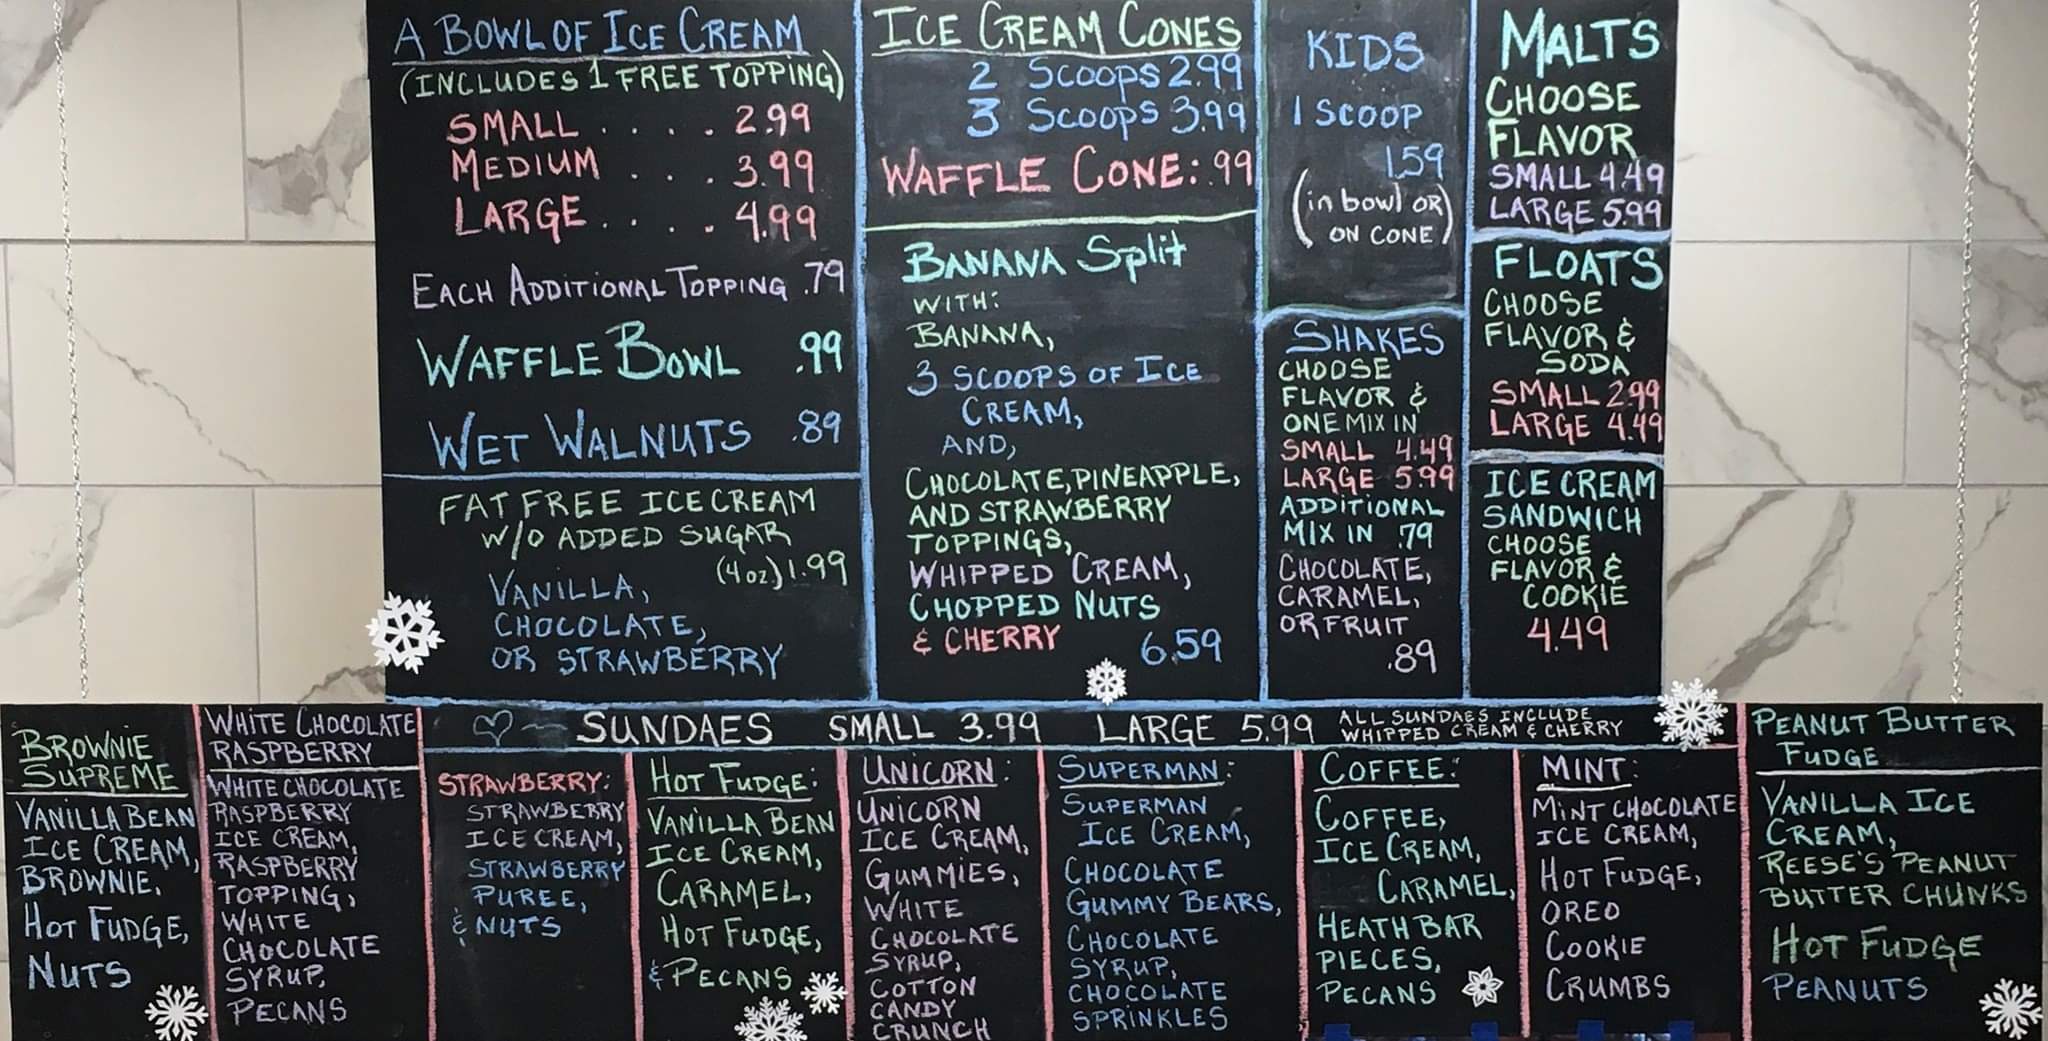 A BOWL OF ICE CREAM
(INCLUDES 1 FREE TOPPING)
SMALL . . . . 2.99
MEDIUM . . . 3.99
LARGE . . . . 4.99
EACH ADDITIONAL TOPPING .79
WAFFLE BOWL .99
WET WALNUTS .89
FAT FREE ICE CREAM
W/O ADDED SUGAR
(4 oz.) 1.99
VANILLA,
CHOCOLATE,
OR STRAWBERRY
ICE CREAM CONES
2 SCOOPS 2.99
3 SCOOPS 3.99
WAFFLE CONE: .99
BANANA Split
WITH:
BANANA,
3 SCOOPS OF ICE
CREAM,
AND,
CHOCOLATE, PINEAPPLE,
AND STRAWBERRY
TOPPINGS,
WHIPPED CREAM,
CHOPPED NUTS
& CHERRY 6.59
KIDS
1 SCOOP
1.59
(in bowl OR
ON CONE)
SHAKES
CHOOSE
FLAVOR &
ONE MIX IN
SMALL 4.49
LARGE 5.99
ADDITIONAL
MIX IN .79
CHOCOLATE,
CARAMEL,
OR FRUIT
.89
MALTS
CHOOSE
FLAVOR
SMALL 4.49
LARGE 5.99
FLOATS
CHOOSE
FLAVOR &
SODA
SMALL 2.99
LARGE 4.49
ICE CREAM
SANDWICH
CHOOSE
FLAVOR &
COOKIE
4.49
SUNDAES SMALL 3.99 LARGE 5.99
ALL SUNDAES INCLUDE
WHIPPED CREAM & CHERRY
BROWNIE
SUPREME
VANILLA BEAN
ICE CREAM,
BROWNIE,
HOT FUDGE,
NUTS
WHITE CHOCOLATE
RASPBERRY
WHITE CHOCOLATE
RASPBERRY
ICE CREAM,
RASPBERRY
TOPPING,
WHITE
CHOCOLATE
SYRUP,
PECANS
STRAWBERRY:
STRAWBERRY
ICE CREAM,
STRAWBERRY
PUREE,
& NUTS
HOT FUDGE:
VANILLA BEAN
ICE CREAM,
CARAMEL,
HOT FUDGE,
& PECANS
UNICORN:
UNICORN
ICE CREAM,
GUMMIES,
WHITE
CHOCOLATE
SYRUP,
COTTON
CANDY
CRUNCH
SUPERMAN:
SUPERMAN
ICE CREAM,
CHOCOLATE
GUMMY BEARS,
CHOCOLATE
SYRUP,
CHOCOLATE
SPRINKLES
COFFEE:
COFFEE,
ICE CREAM,
CARAMEL,
HEATH BAR
PIECES,
PECANS
MINT:
MINT CHOCOLATE
ICE CREAM,
HOT FUDGE,
OREO
COOKIE
CRUMBS
PEANUT BUTTER
FUDGE
VANILLA ICE
CREAM,
REESE'S PEANUT
BUTTER CHUNKS
HOT FUDGE
PEANUTS